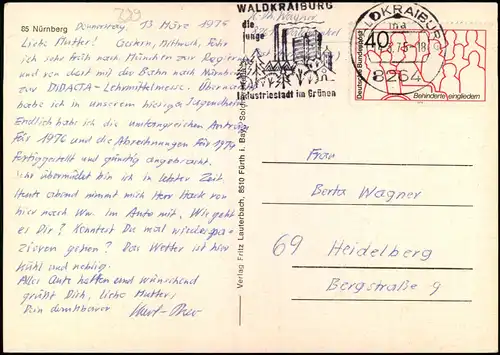 85 Nürnberg
Donnerstag, 13 März 1975
Liebe Mutter! Gestern, Mittwoch, fuhr
ich sehr früh nach München zur Regierung
und von dort mit der Bahn nach Nürnberg
zur DIDACTA-Lehrmittelmesse. Übernachtet
habe ich in unserem hiesigen Jugendheim
Endlich habe ich die umfangreichen Anträge
für 1976 und die Abrechnungen für 1974
fertiggestellt und günstig angebracht.
Sehr übermüdet bin ich in letzter Zeit.
Heute abend nimmt mich Herr Hack von
hier nach Ww. im Auto mit. Wie geht
es Dir? Konntest Du mal wieder spa-
zieren gehen? Das Wetter ist hier
kühl und neblig.
Alles Gute hoffend und wünschend
grüßt Dich, liebe Mutter,
Dein dankbarer
Verlag Fritz Lauterbach, 8510 Fürth i. Bay.
WALDKRAIBURG
die
junge
Industriestadt im Grünen
8264
Deutsche Bundespost
40
Behinderte eingliedern
Frau
Berta Wagner
69 Heidelberg
Bergstraße 9